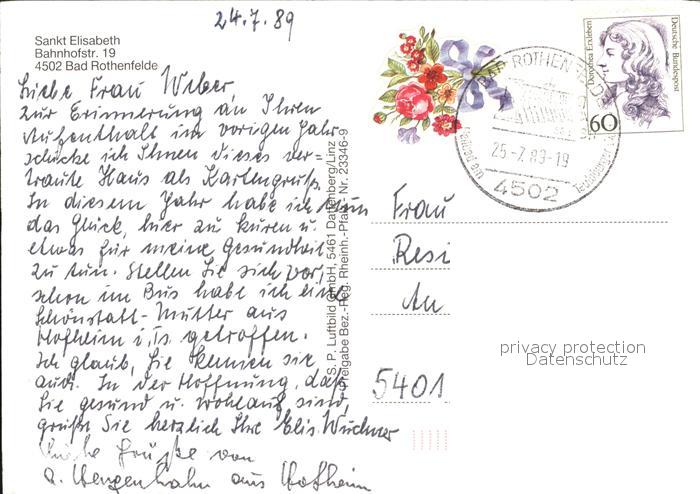 24.7.89
Sankt Elisabeth
Bahnhofstr. 19
4502 Bad Rothenfelde
Liebe Frau Weber,
zur Erinnerung an Ihren
Aufenthalt im vorigen Jahr
schicke ich Ihnen dieses ver-
traute Haus als Kartengruß.
In diesem Jahr habe ich nun
das Glück, hier zu kuren u.
etwas für meine Gesundheit
zu tun. Stellen Sie sich vor,
schon im Bus habe ich eine
Schönstatt-Mutter aus
Hofheim i. Ts getroffen.
Ich glaub, Sie kennen sie
auch. In der Hoffnung, daß
Sie gesund u. wohlauf sind,
grüße Sie herzlich Ihre Elis.
Liebe Grüße von
aus Hofheim
S. P. Luftbild GmbH, 5461 Dattenberg/Linz
Freigabe Bez.-Reg. Rheinh.-Pfalz Nr. 23346-9
Dorothea Erxleben
Deutsche Bundespost
60
BAD ROTHENFELDE
25-7.89-19
4502
Frau
Resi
An
5401
privacy protection
Datenschutz